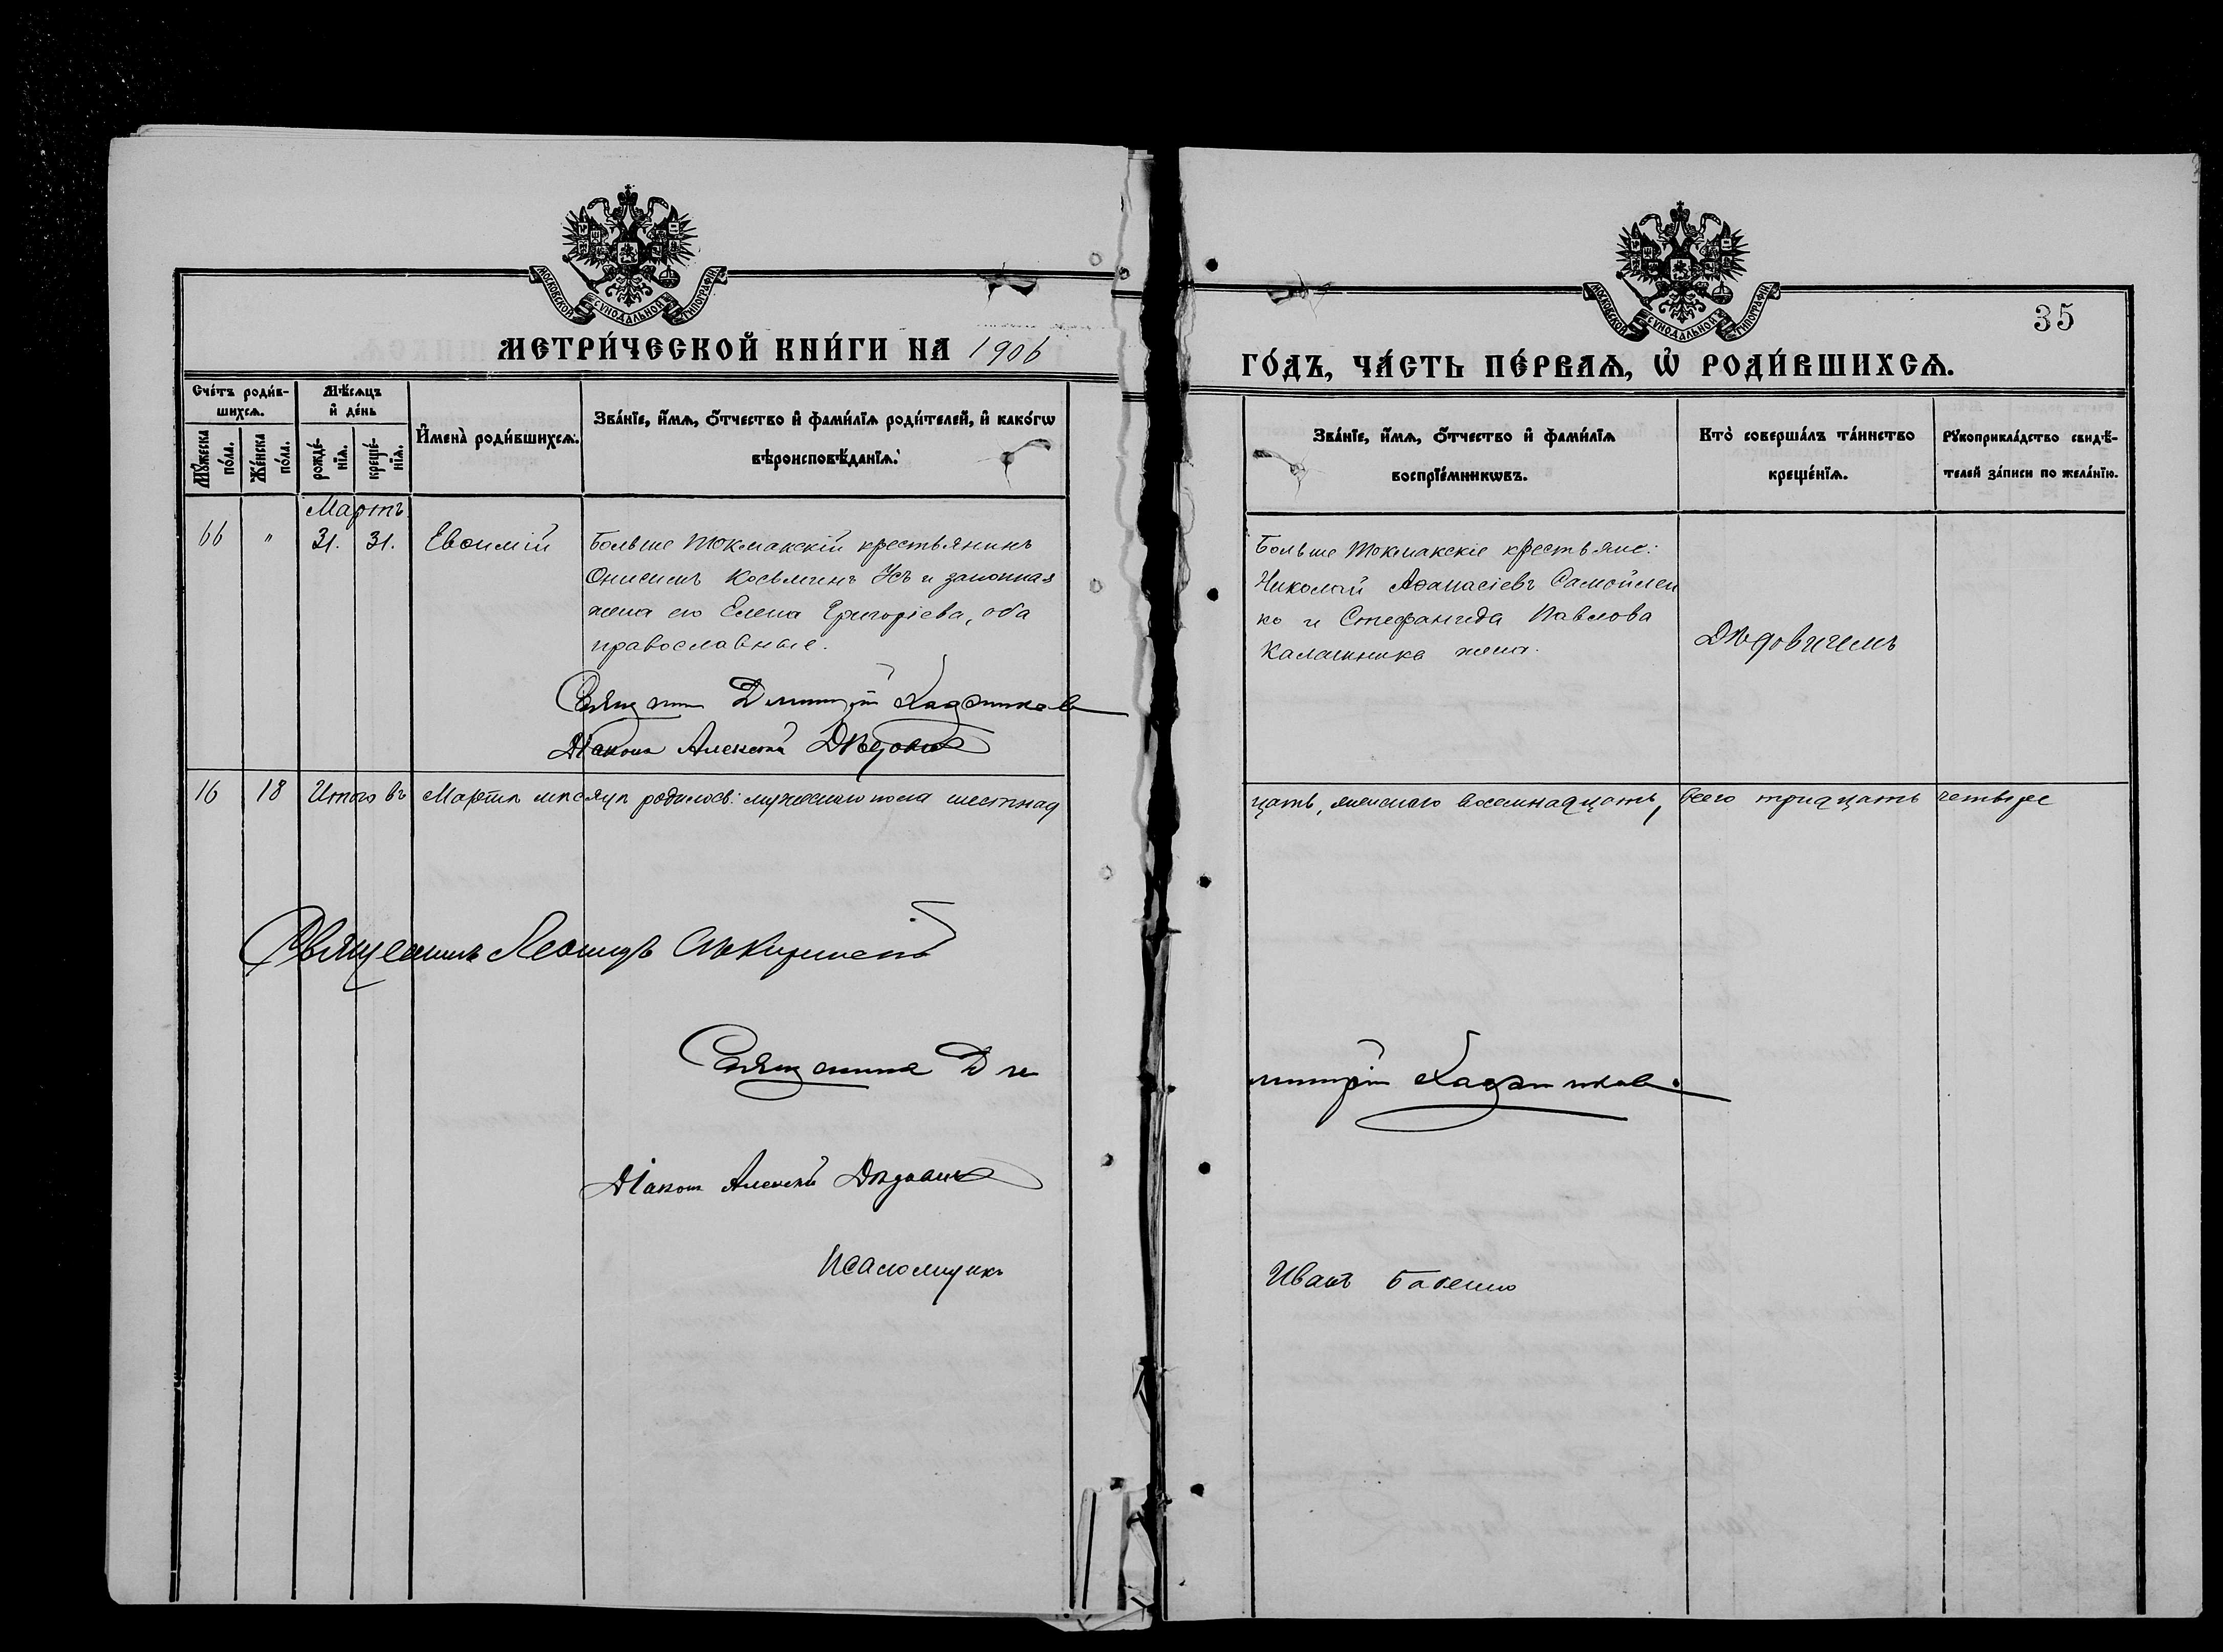 МОСКОВСКОЙ СѴНОДАЛЬНОЙ ТИПОГРАФІИ
МЕТРИ́ЧЕСКОЙ КНИ́ГИ НА 1906
Сче́тъ роди́в-
шихсѧ.
Мꙋ́жеска
по́ла.
Же́нска
по́ла.
Мѣ́сѧцъ
и҆ де́нь
рожде́-
нїѧ.
креще́-
нїѧ.
И҆мена̀ роди́вшихсѧ.
Зва́нїе, и҆́мѧ, ѻ҆́тчество и҆ фами́лїѧ роди́телей, и҆ како́гѡ
вѣроисповѣ́данїѧ.
Мартъ
66 " 31. 31. Евѳимій
Больше Токмакскій крестьянинъ
Онисимъ Косьминъ Усъ и законная
жена его Елена Григоріева, оба
православные.
Священник Димитрій
Діаконъ Алексій Дѣдовичъ
16 18 Итого въ Мартѣ мѣсяцѣ родилось: мужескаго пола шестнад
Священникъ Леонидъ
Священникъ Ди
Діаконъ Алексій Дѣдовичъ
Псаломщикъ
МОСКОВСКОЙ СѴНОДАЛЬНОЙ ТИПОГРАФІИ
35
ГО́ДЪ, ЧА́СТЬ ПЕ́РВАѦ, Ѡ҆ РОДИ́ВШИХСѦ.
Зва́нїе, и҆́мѧ, ѻ҆́тчество и҆ фами́лїѧ
воспрїе́мникѡвъ.
Кто̀ соверша́лъ та́инство
креще́нїѧ.
Рꙋкоприкла́дство свидѣ́-
телей за́писи по жела́нїю.
Больше Токмакскіе крестьяне:
Николай Аѳанасіевъ Самойлен
ко и Стефанида Павлова
Калашника жена.
Дѣдовичемъ
цать, женскаго восемнадцать, всего тридцать четыре
митрій
Иванъ Бабенко